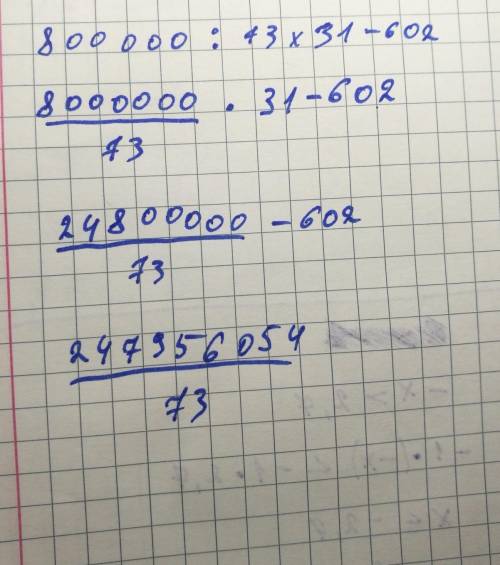 800000 : 73 x 31 - 602
8000000 · 31 - 602
73
24800000 - 602
73
247956054
73